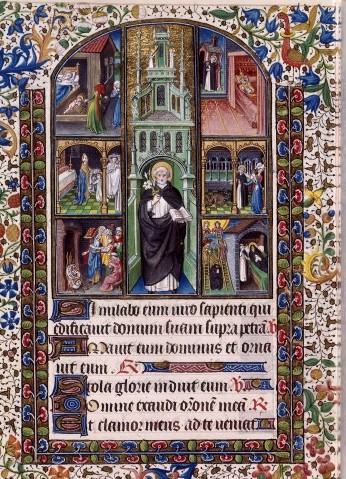 Similabo eum viro sapienti qui
edificavit domum suam supra petrā V
Amavit eum dominus et orna
vit eum. R
Stola glorie induit eum V
Domine exaudi oronē meā R
Et clamor meus ad te veniat